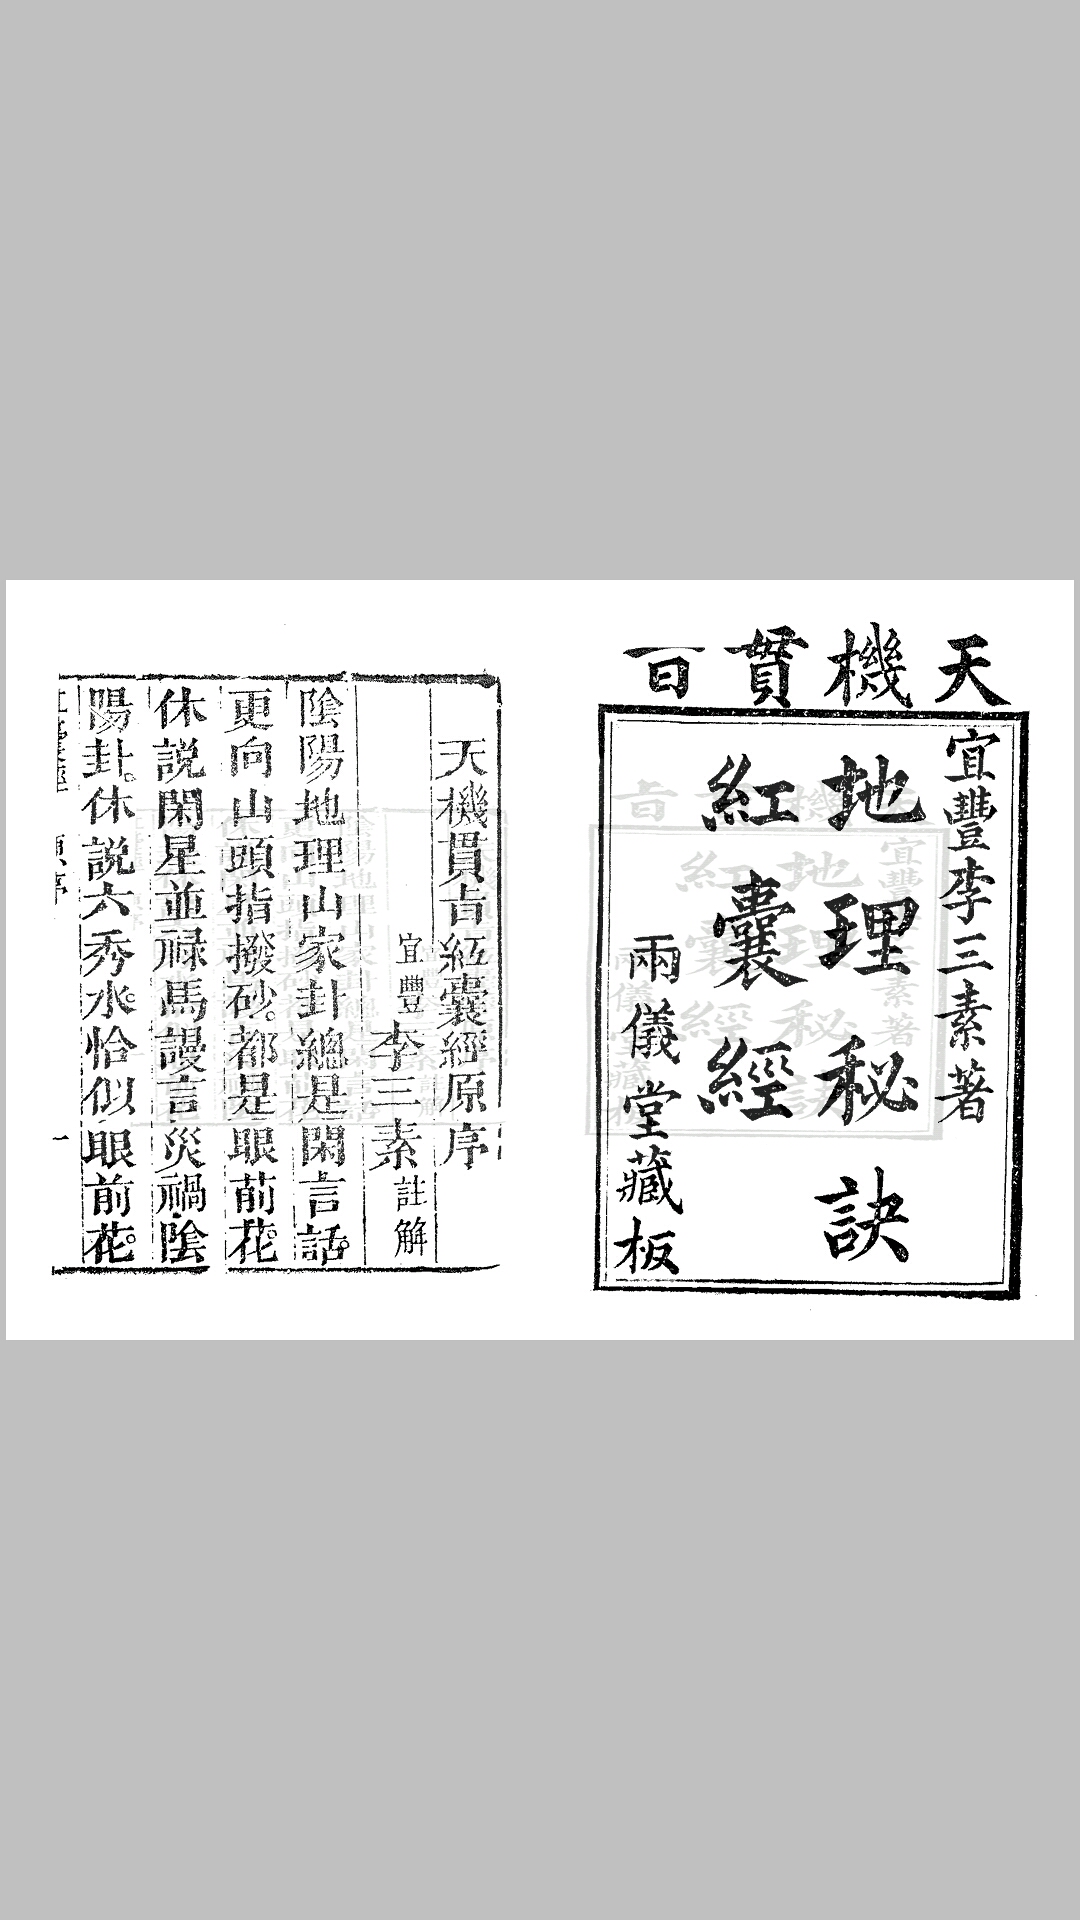 天機貫㫖
宜豐李三素著
地理秘訣
紅囊經
兩儀堂藏板
天機貫㫖紅囊經原序
宜豐李三素註解
陰陽地理山家卦總是閑言話。
更向山頭指撥砂。都是眼前花。
休説閑星並禄馬謾言災禍陰
陽卦。休説六秀水。恰似眼前花。